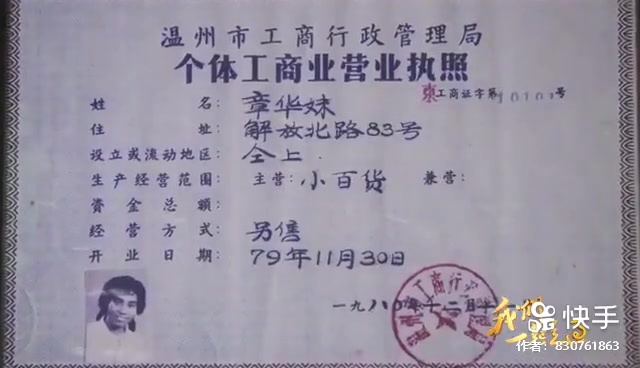 温州市工商行政管理局
个体工商业营业执照
東工商证字第10101号
姓名：章华妹
住址：解放北路83号
设立或流动地区：仝上
生产经营范围：主营：小百货 兼营：
资金总额：
经营方式：另售
开业日期：79年11月30日
一九八〇年十二月十一
快手
作者：830761863